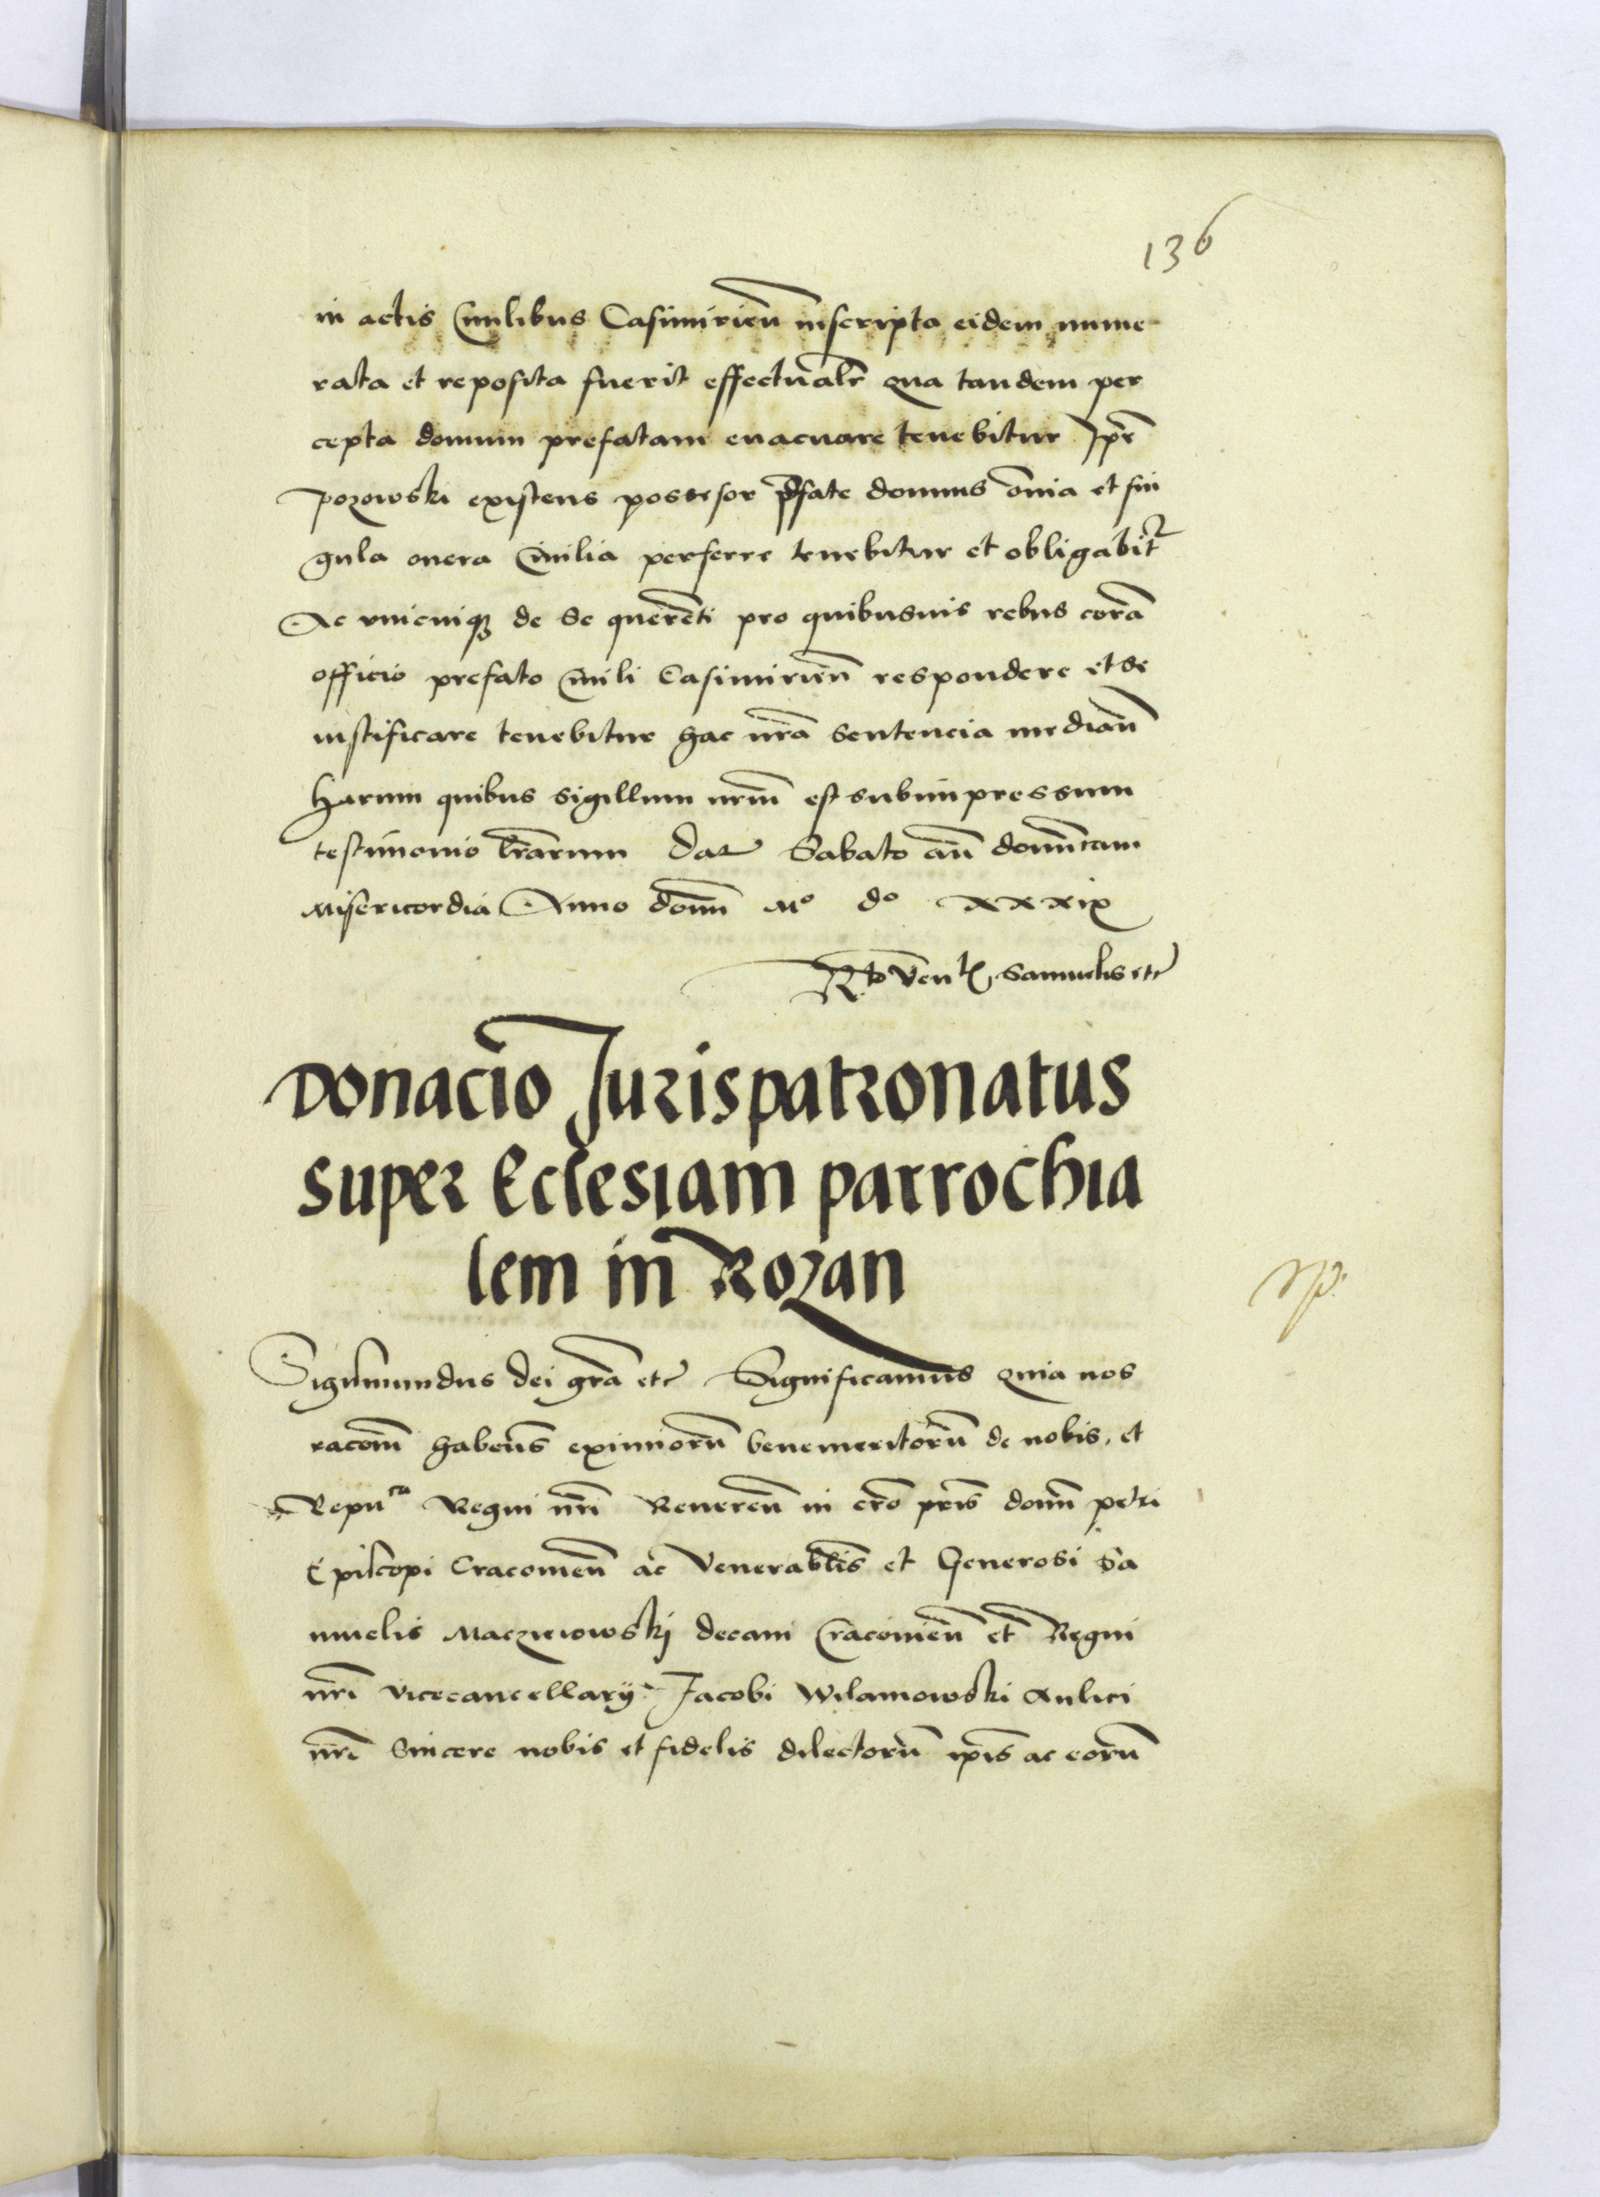 136
in actis Civilibus Casimirien̄ inscripta eidem nume
rata et reposita fuerit effectualr̄ qua tandem per
cepta domum prefatam evacuare tenebitur Ipe͞
Pozowski existens possesor p̄fate domus o͞nia et sin
gula onera Civilia perferre tenebitur et obligabit͛
Ac unicuiqꝫ de se querēti pro quibusuis rebus corā
officio prefato Civili Casimirien̄ respondere et se
iustificare tenebitur hac nrā sentencia median̄
harum quibus sigillum nrm̄ est subimpressum
testimonio lr̄arum Dat͛ Sabato an̄ domin̄cam
Misericordia Anno domn̄ Mº dº xxxix
R̄to Ven lis Samuelis etc̄
Donacio Jurispatronatus
super Ecclesiam parrochia
lem in Rozan
Sigismundus dei grā etc̄ Significamus quia nos
racom̄ haben̄s eximiorū benemeritorū de nobis, et
Repuca Regni nrī Reveren̄ in cr̄o prīs domn̄ petri
Ep̄iscopi Cracovien̄ ac Venerablīs et Generosi Sa
muelis Maczieiowskj decani Cracovien̄ et Regni
nrī vicecancellarÿ Jacobi Wilamowski Aulici
nrī Sincere nobis et fidelis dilectorū ip̄is ac eorū